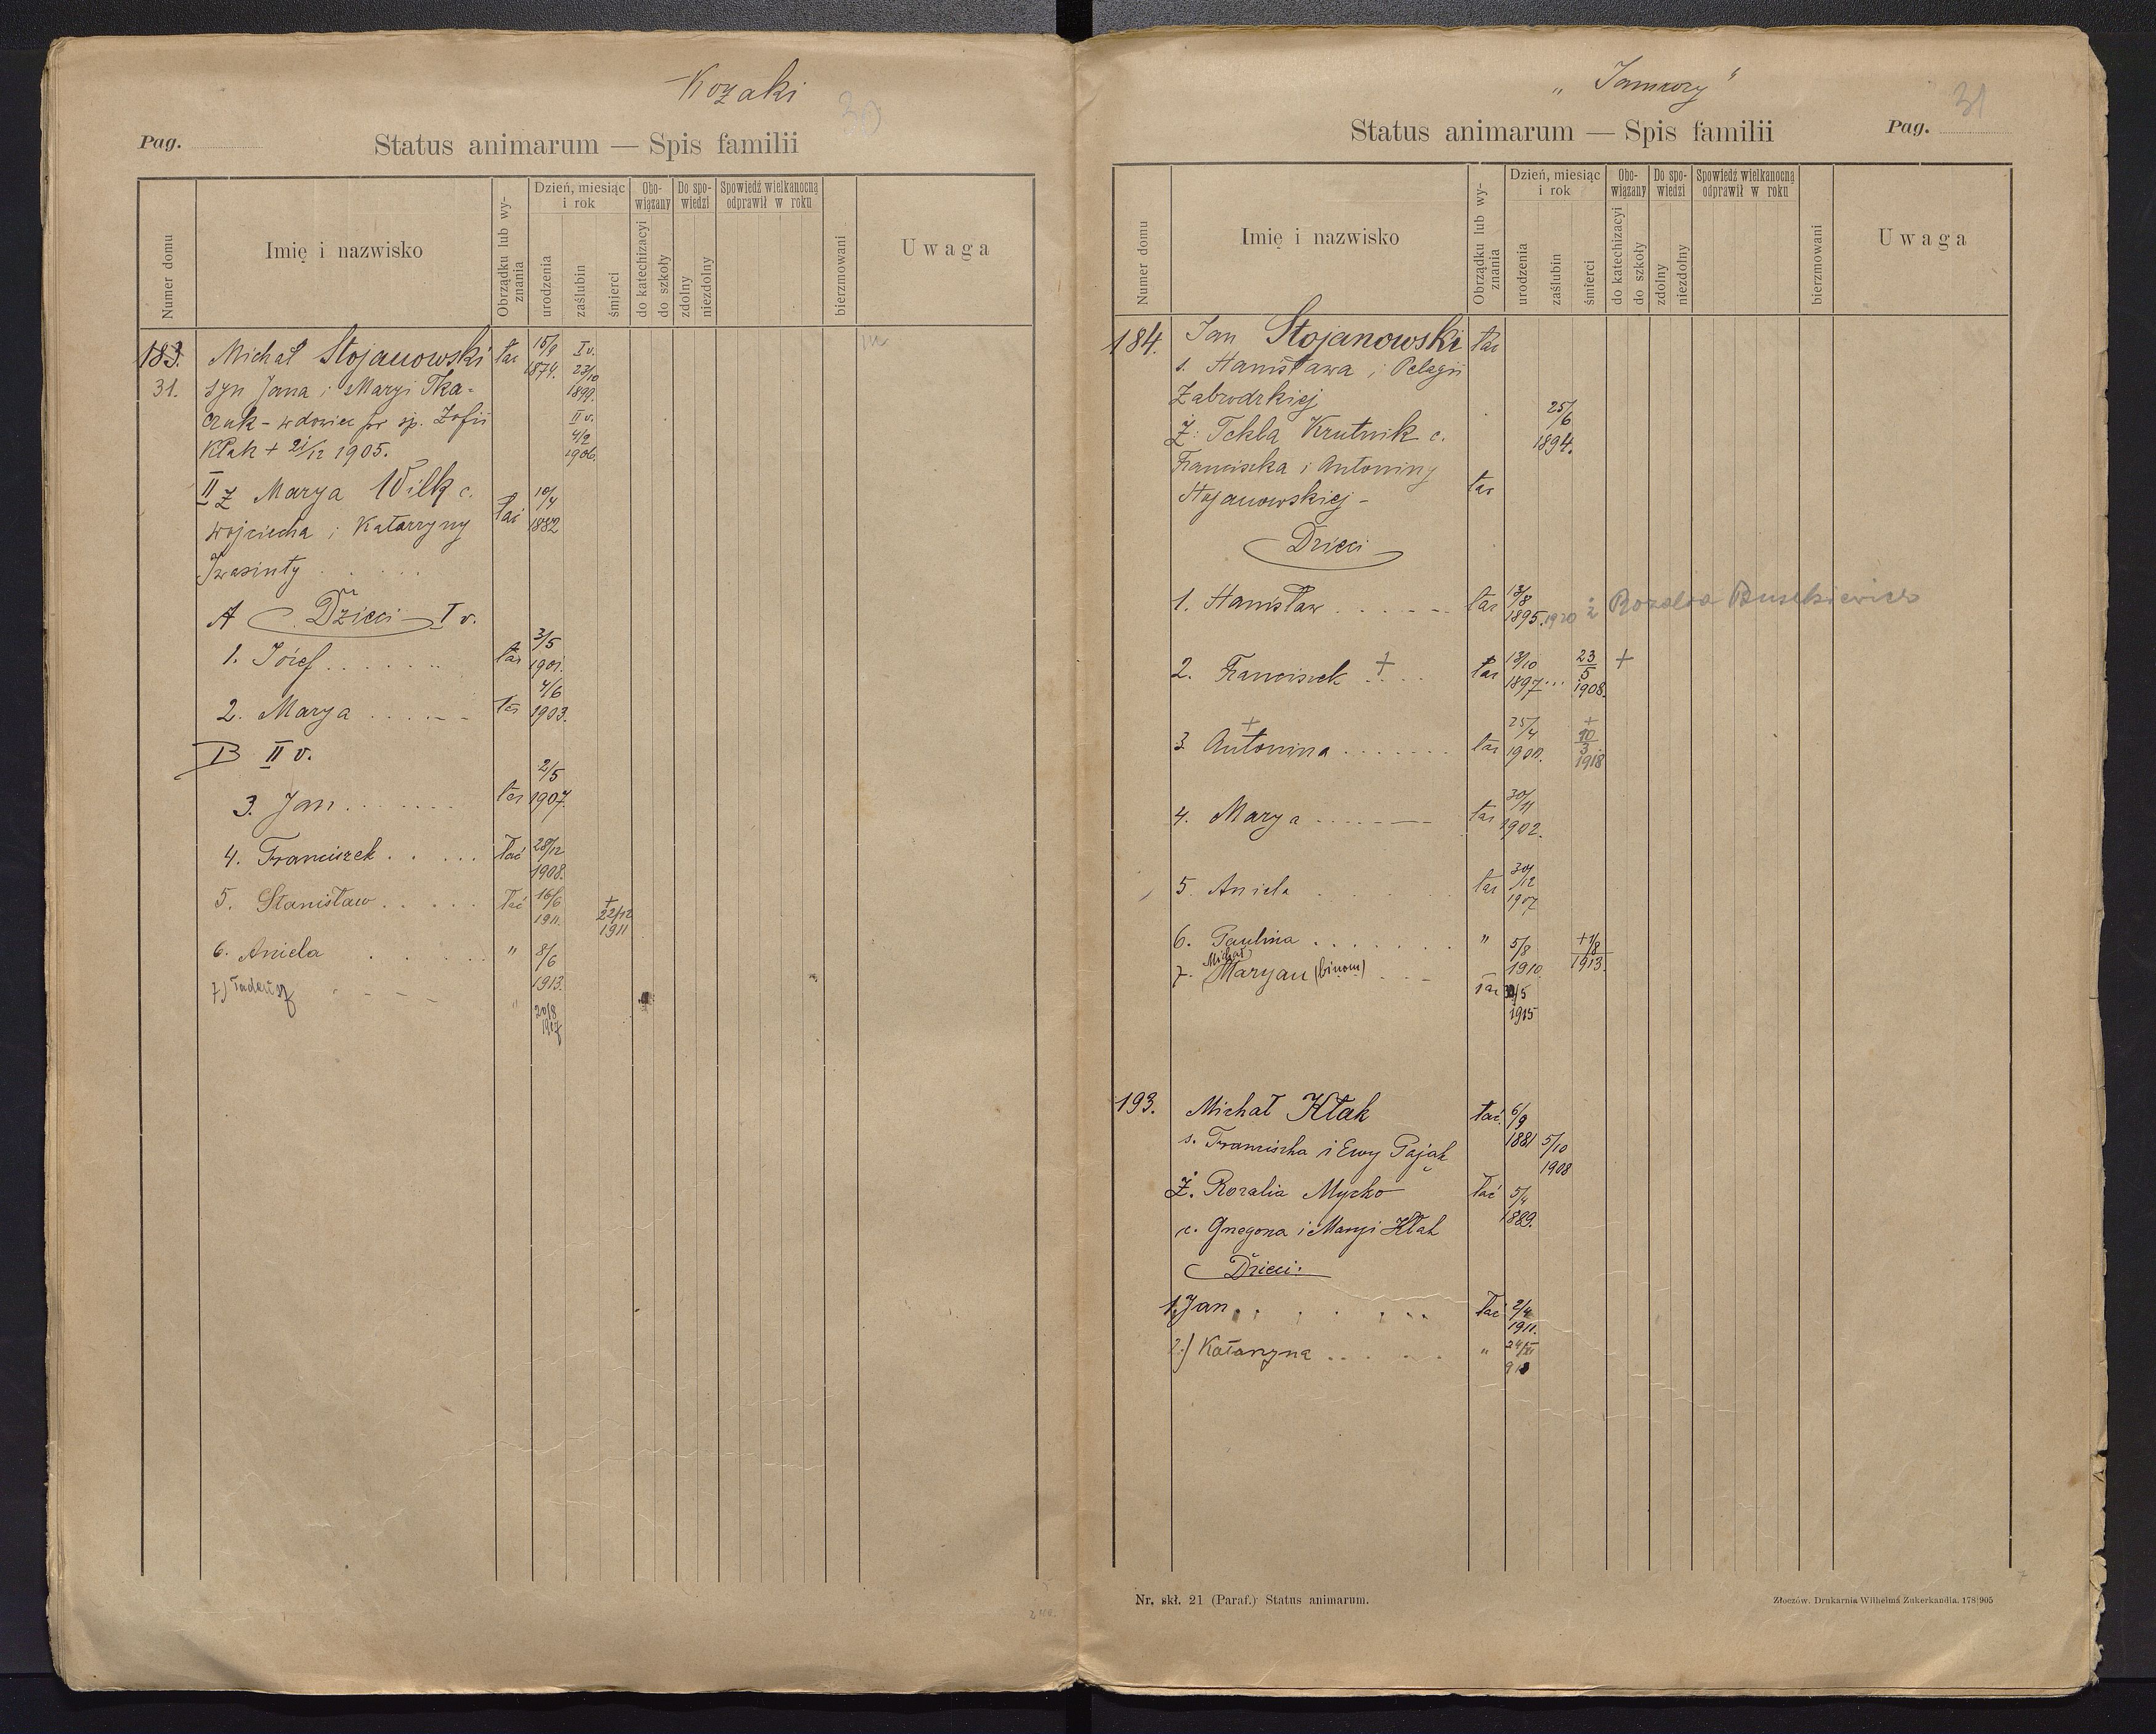 Kozaki
30
Pag.
Status animarum — Spis familii
Numer domu
Imię i nazwisko
Obrządku lub wy-
znania
Dzień, miesiąc
i rok
urodzenia
zaślubin
śmierci
Obo-
wiązany
do katechizacyi
do szkoły
Do spo-
wiedzi
zdolny
niezdolny
Spowiedź wielkanocną
odprawił w roku
bierzmowani
Uwaga
183. Michał Stojanowski łac 15/9 1874. I v. 23/10 1899.
31. syn Jana i Maryi Tka-
czuk - wdowiec po śp. Zofii II v. 4/2 1906.
Kłak + 21/12 1905.
II Ż Marya Wilk c. łac 10/4 1882
Wojciecha i Katarzyny
A Dzieci I v.
1. Józef łac 3/5 1901.
2. Marya łac 4/6 1903.
B II v.
3. Jan łac 2/5 1907.
4. Franciszek łać 28/12 1908.
5. Stanisław łać 16/6 1911. + 22/12 1911
6. Aniela " 8/6 1913.
7) Tadeusz " 20/8 1917
"Jamnory"
31
Status animarum — Spis familii
Pag.
Numer domu
Imię i nazwisko
Obrządku lub wy-
znania
Dzień, miesiąc
i rok
urodzenia
zaślubin
śmierci
Obo-
wiązany
do katechizacyi
do szkoły
Do spo-
wiedzi
zdolny
niezdolny
Spowiedź wielkanocną
odprawił w roku
bierzmowani
Uwaga
184. Jan Stojanowski łac
s. Stanisława i Pelagii
Zabrodzkiej
Ż: Tekla Krutnik c. 25/6 1894.
Franciszka i Antoniny
Stojanowskiej - łac
Dzieci
1. Stanisław łac 13/8 1895. 1920 ż Rozalia
2. Franciszek + łac 13/10 1897 23/5 1908. +
3. Antonina + łac 25/4 1900. + 10/3 1918
4. Marya łac 30/11 1902.
5. Aniela łac 30/12 1907
6. Paulina " 5/8 1910 + 1/8 1913.
Michał
7. Maryan (binom) łac /5 1915
193. Michał Kłak łać. 6/9 1881 5/10 1908
s. Franciszka i Ewy Pająk
Ż. Rozalia Myzko łać 5/4 1889.
c. Grzegorza i Maryi Kłak
Dzieci:
1. Jan łać 2/4 1911.
2.) Katarzyna " 24/XI
Nr. skł. 21 (Paraf.) Status animarum.
Złoczów. Drukarnia Wilhelma Zukerkandla. 178|905